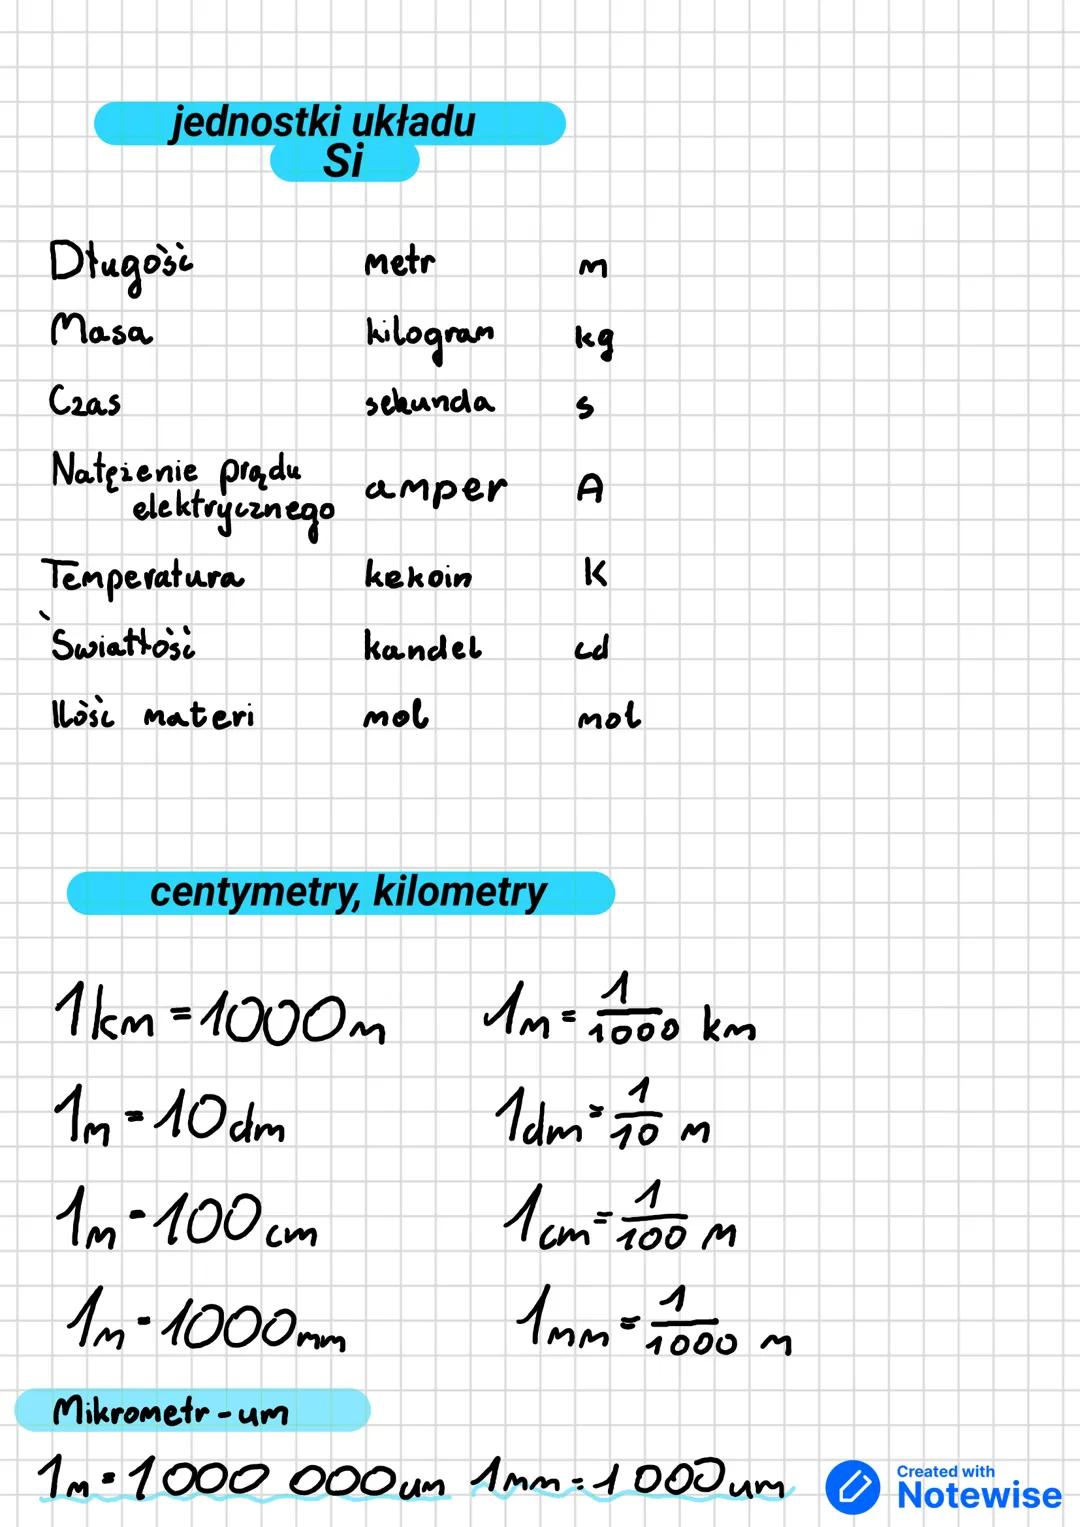 jednostki układu
Si
Długość metr m
Masa kilogram kg
Czas sekunda s
Natężenie prądu
elektrycznego amper A
Temperatura kekoin K
Światłość kandel cd
Ilość materi mol mol
centymetry, kilometry
1km = 1000m 1m = 1/1000 km
1m = 10dm 1dm = 1/10 m
1m - 100cm 1cm = 1/100 m
1m - 1000mm 1mm = 1/1000 m
Mikrometr - um
1m = 1000 000um 1mm = 1000um
Created with
Notewise